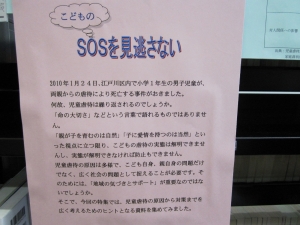 こどもの
SOSを見逃さない
2010年1月24日、江戸川区内で小学1年生の男子児童が、
両親からの虐待により死亡する事件がおきました。
何故、児童虐待は繰り返されるのでしょうか。
「命の大切さ」などという言葉で語れるものではありま
せん。
「親が子を育むのは自然」「子に愛情を持つのは当然」といっ
た視点に立つ限り、こどもの虐待の実態は解明できませ
んし、実態が解明できなければ防止もできません。
児童虐待の原因は多様で、こども自身、親自身の問題だけ
でなく、広く社会の問題として捉えることが必要です。そ
のためには、「地域の気づきとサポート」が重要なのではな
いでしょうか。
そこで、今回の特集では、児童虐待の原因から対策までを
広く考えるためのヒントとなる資料を集めてみました。